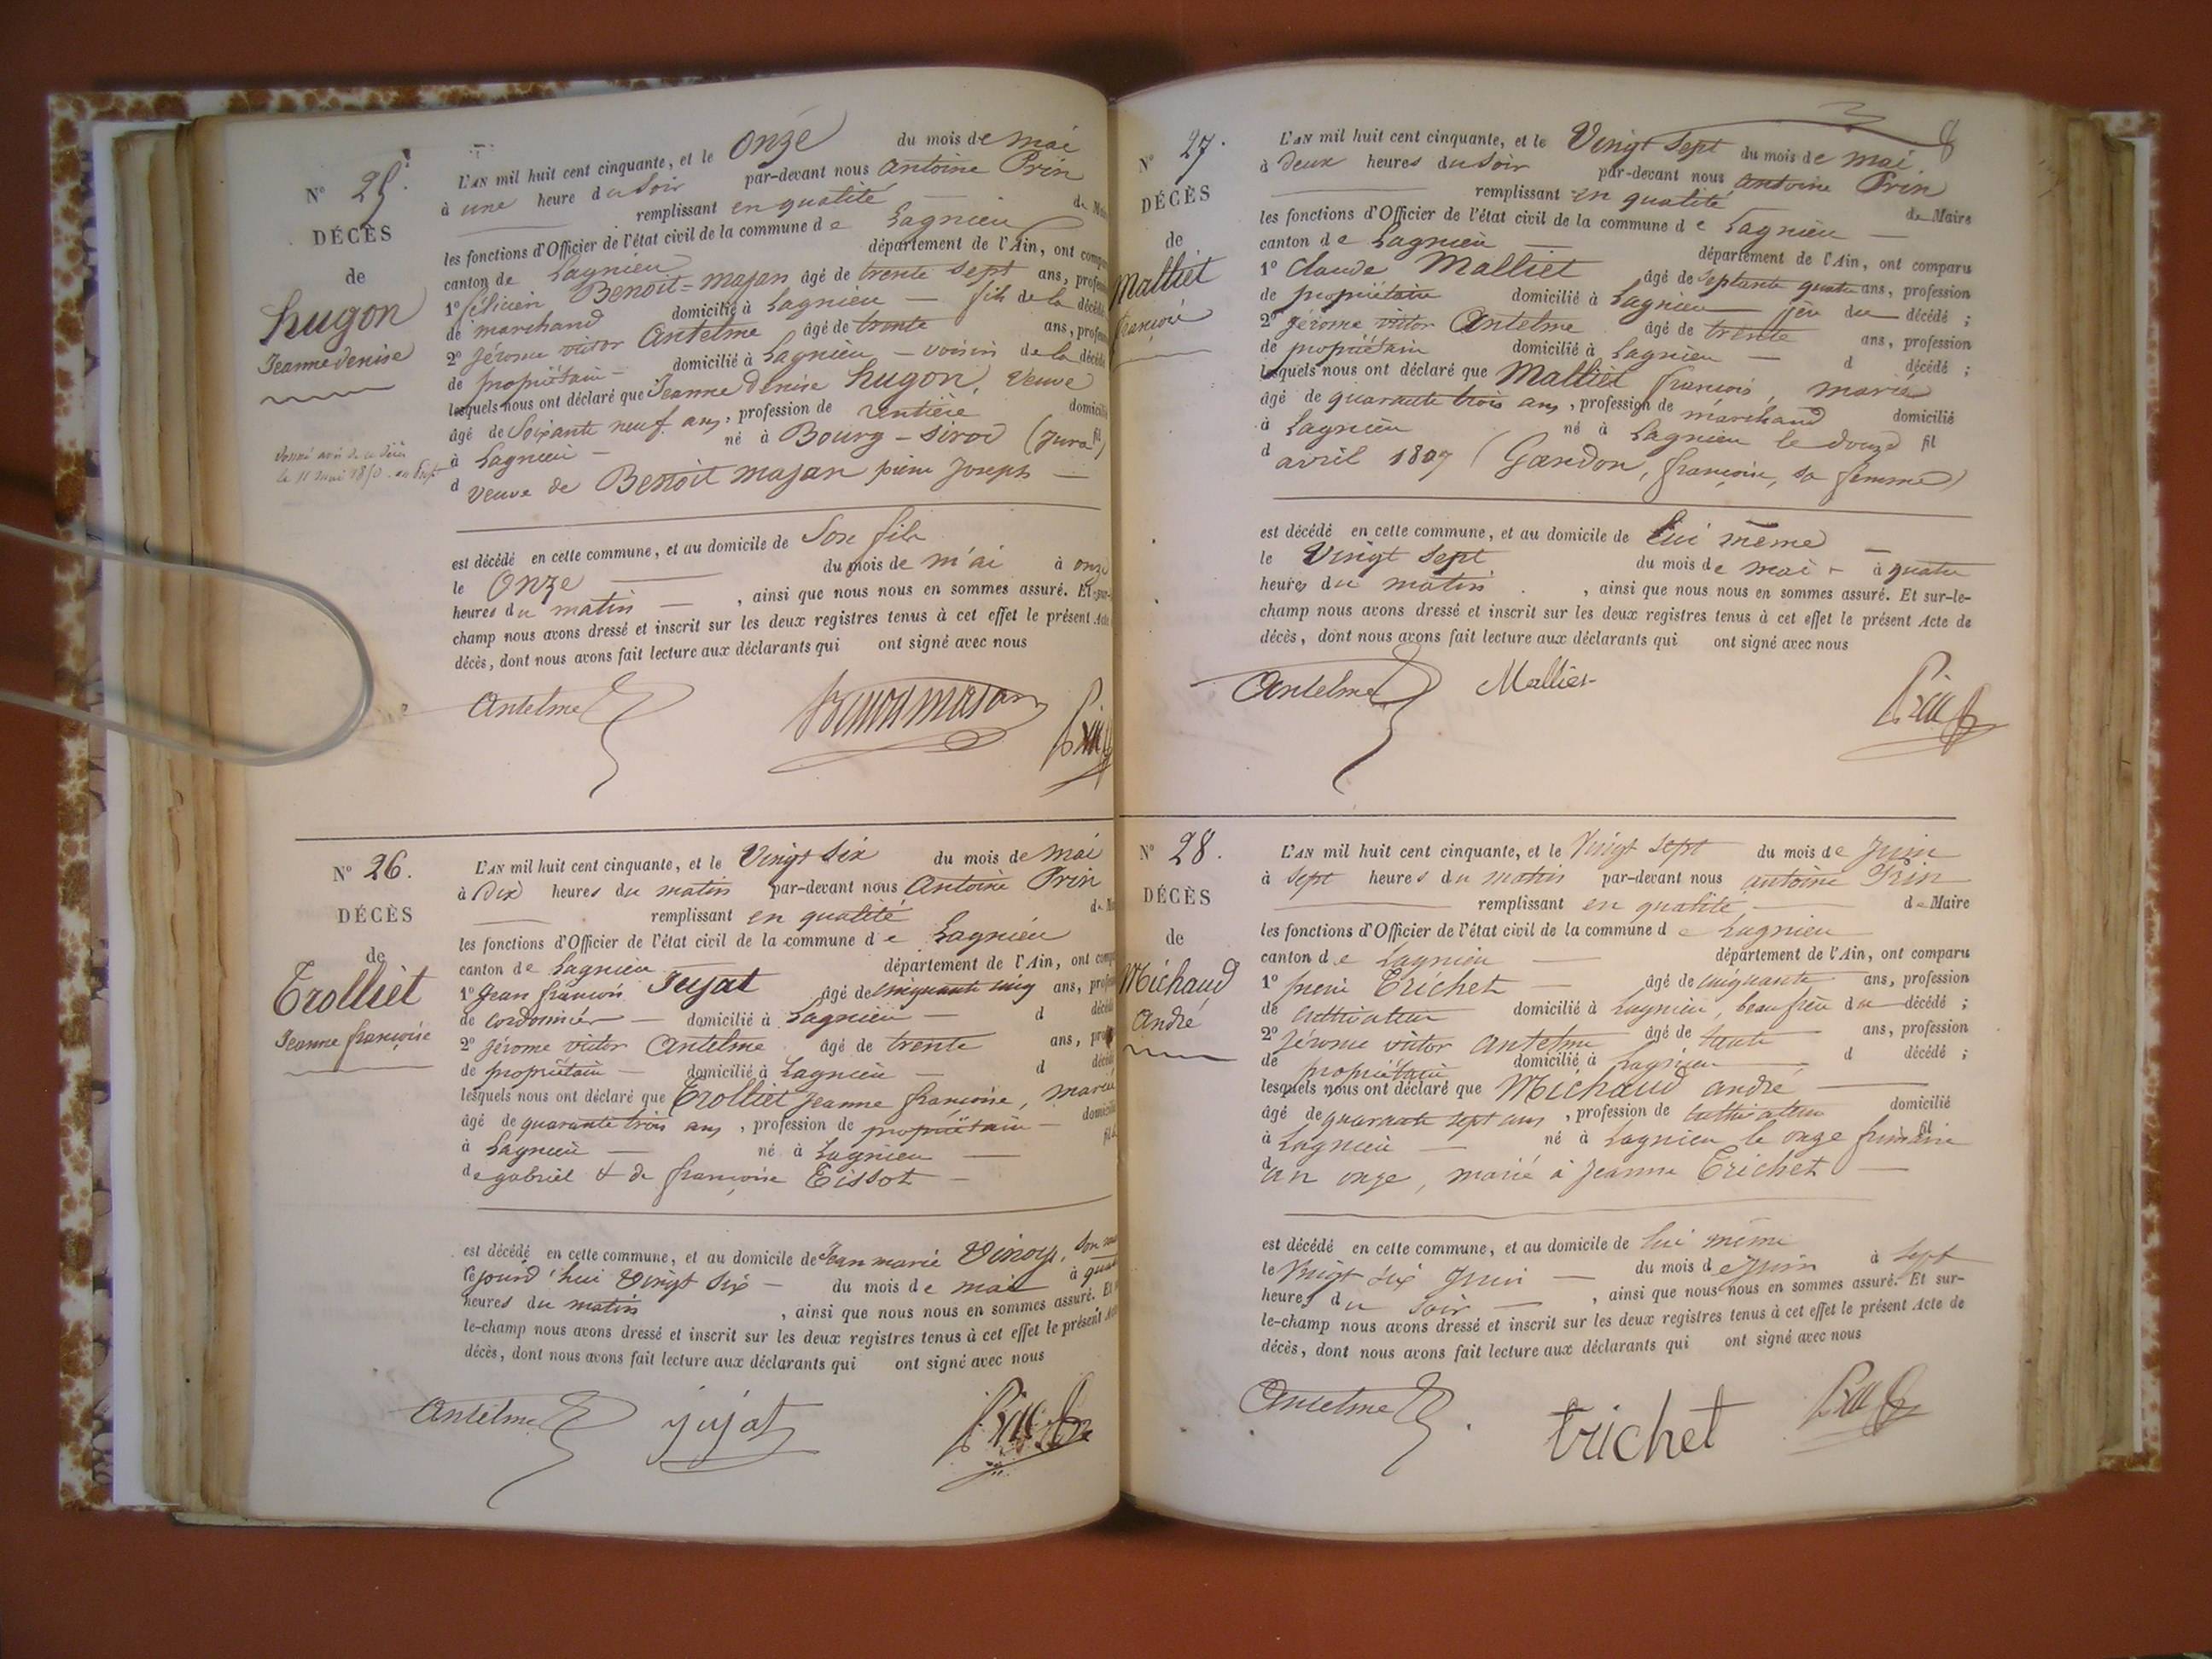 N° 25.
DÉCÈS
de
hugon
Jeanne denise
le 11 mai 1850
L'AN mil huit cent cinquante, et le Onze du mois de mai
à une heure du Soir par-devant nous antoine Prin
remplissant en qualité de Maire
les fonctions d'Officier de l'état civil de la commune de Lagnieu
canton de Lagnieu département de l'Ain, ont comparu
1° félicien Benoit=majan âgé de trente sept ans, profession
de marchand domicilié à Lagnieu — fils de la décédée
2° Jérome victor Antelme âgé de trente ans, profession
de propriétaire — domicilié à Lagnieu — voisin de la décédée
lesquels nous ont déclaré que Jeanne denise hugon, veuve
âgé de Soixante neuf ans, profession de rentière domicilié
à Lagnieu — né à Bourg-Sirod (Jura) fil
d veuve de Benoit majan pierre Joseph —
est décédé en cette commune, et au domicile de Son fils
le Onze du mois de mai à onze
heures du matin —, ainsi que nous nous en sommes assuré. Et sur-
champ nous avons dressé et inscrit sur les deux registres tenus à cet effet le présent Acte
décès, dont nous avons fait lecture aux déclarants qui ont signé avec nous
Antelme Prin
N° 26.
DÉCÈS
de
Trolliet
Jeanne françoise
L'AN mil huit cent cinquante, et le Vingt Six du mois de mai
à Dix heures du matin par-devant nous Antoine Prin
remplissant en qualité
les fonctions d'Officier de l'état civil de la commune de Lagnieu
canton de Lagnieu département de l'Ain, ont comparu
1° Jean françois Jujat âgé de cinquante cinq ans, profession
de cordonnier — domicilié à Lagnieu — d décédé
2° Jérome victor Antelme âgé de trente ans, profession
de propriétaire — domicilié à Lagnieu — d décédé
lesquels nous ont déclaré que Trolliet Jeanne françoise, mariée
âgé de quarante trois ans, profession de propriétaire — domicilié
à Lagnieu — né à Lagnieu —
de gabriel & de françoise Tissot —
est décédé en cette commune, et au domicile de Jean marie Vinoy, son
cejourd'hui Vingt Six — du mois de mai à quatre
heures du matin, ainsi que nous nous en sommes assuré. Et
le-champ nous avons dressé et inscrit sur les deux registres tenus à cet effet le présent Acte
décès, dont nous avons fait lecture aux déclarants qui ont signé avec nous
Antelme jujat Prin
N° 27.
DÉCÈS
de
Malliet
françois
L'AN mil huit cent cinquante, et le Vingt Sept du mois de mai
à deux heures du Soir par-devant nous antoine Prin
remplissant en qualité de Maire
les fonctions d'Officier de l'état civil de la commune de Lagnieu —
canton de Lagnieu — département de l'Ain, ont comparu
1° Claude Malliet âgé de Septante quatre ans, profession
de propriétaire domicilié à Lagnieu père du décédé ;
2° Jérome victor Antelme âgé de trente ans, profession
de propriétaire domicilié à Lagnieu — d décédé ;
lesquels nous ont déclaré que Malliet françois, marié
âgé de quarante trois ans, profession de marchand domicilié
à Lagnieu né à Lagnieu le douze fil
d avril 1807 (Gandon, françoise, sa femme)
est décédé en cette commune, et au domicile de Lui même —
le Vingt Sept du mois de mai — à quatre
heures du matin, ainsi que nous nous en sommes assuré. Et sur-le-
champ nous avons dressé et inscrit sur les deux registres tenus à cet effet le présent Acte de
décès, dont nous avons fait lecture aux déclarants qui ont signé avec nous
Antelme Malliet Prin
N° 28.
DÉCÈS
de
Michaud
André
L'AN mil huit cent cinquante, et le Vingt Sept du mois de Juin
à Sept heures du matin par-devant nous antoine Prin
remplissant en qualité de Maire
les fonctions d'Officier de l'état civil de la commune de Lagnieu
canton de Lagnieu — département de l'Ain, ont comparu
1° pierre Trichet — âgé de cinquante ans, profession
de cultivateur domicilié à Lagnieu, beaufrère du décédé ;
2° Jérome victor Antelme âgé de trente ans, profession
de propriétaire domicilié à Lagnieu d décédé ;
lesquels nous ont déclaré que Michaud andré —
âgé de quarante sept ans, profession de cultivateur domicilié
à Lagnieu — né à Lagnieu le onze frimaire fil
d an onze, marié à Jeanne Trichet —
est décédé en cette commune, et au domicile de lui même
le Vingt Six Juin — du mois de Juin à Sept
heures du Soir —, ainsi que nous nous en sommes assuré. Et sur-
le-champ nous avons dressé et inscrit sur les deux registres tenus à cet effet le présent Acte de
décès, dont nous avons fait lecture aux déclarants qui ont signé avec nous
Antelme trichet Prin